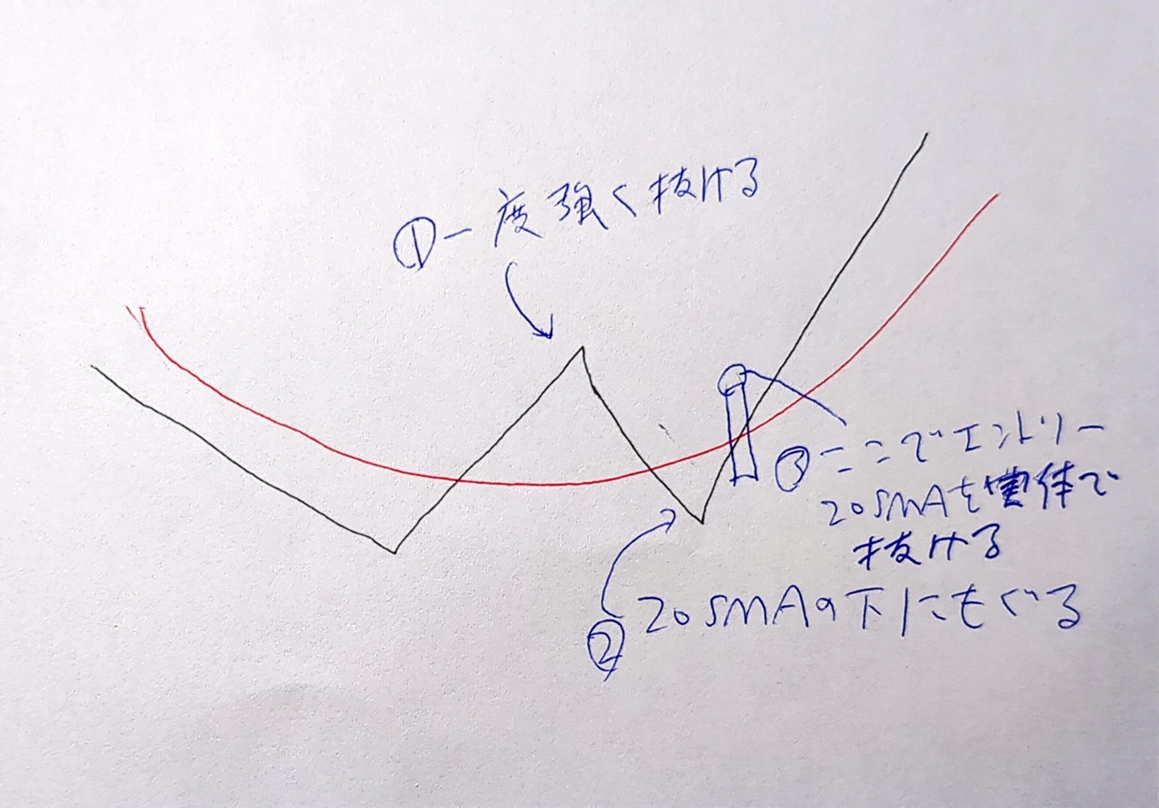 ①一度強く抜ける
③ここでエントリー
20SMAを実体で
抜ける
②20SMAの下にもぐる